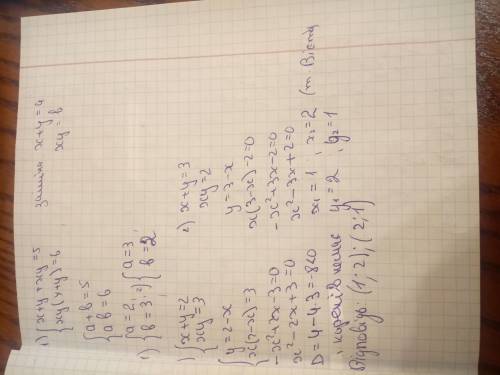 в) { x+y+xy=5
{ xy(x+y)=6
заміна x+y=a
xy=b
{ a+b=5
{ ab=6
1) { a=2, 2) { a=3,
{ b=3 { b=2
1) { x+y=2
{ xy=3
{ y=2-x
{ x(2-x)=3
-x²+2x-3=0
x²-2x+3=0
D=4-4·3=-8<0
коренів немає
2) x+y=3
xy=2
y=3-x
x(3-x)-2=0
-x²+3x-2=0
x²-3x+2=0
x₁=1 ; x₂=2 (т. Вієта)
y₁=2 ; y₂=1
Відповідь: (1;2);(2;1)